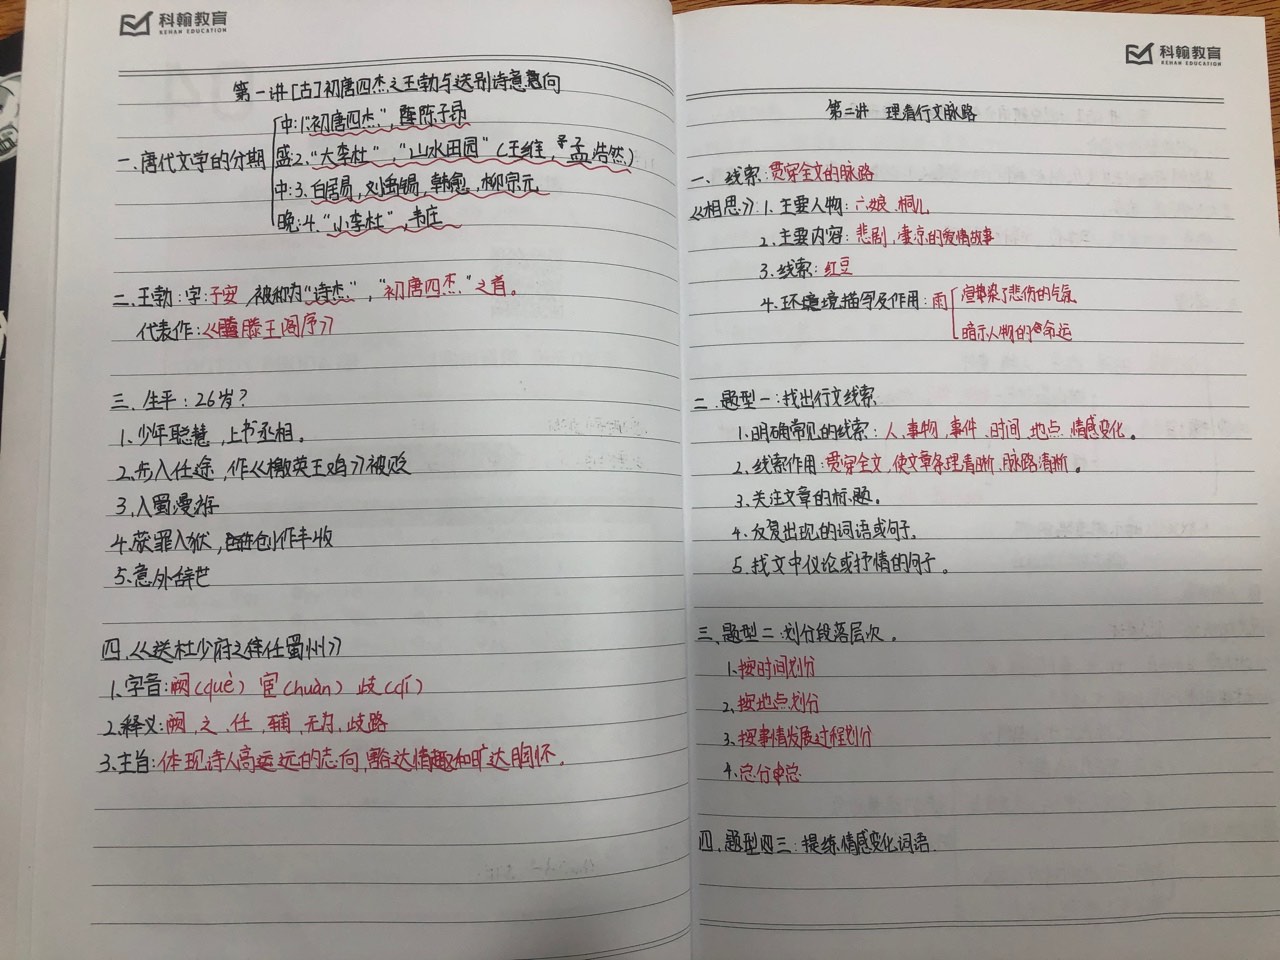 科翰教育
KEHAN EDUCATION
第一讲[古]初唐四杰之王勃与送别诗意向
一、唐代文学的分期
中:1."初唐四杰",陈子昂
盛2."大李杜","山水田园"(王维,孟浩然)
中:3.白居易,刘禹锡,韩愈,柳宗元
晚:4."小李杜",韦庄
二、王勃:字:子安,被称为"诗杰","初唐四杰"之首。
代表作:《滕王阁序》
三、生平:26岁?
1、少年聪慧,上书丞相。
2、步入仕途,作《檄英王鸡》被贬
3、入蜀漫游
4、获罪入狱,创作丰收
5、意外辞世
四、《送杜少府之任蜀州》
1、字音:阙(què) 宦(huàn) 歧(qí)
2、释义:阙、之、任、辅、无为、歧路
3、主旨:体现诗人高远的志向,豁达情趣和旷达胸怀。
科翰教育
KEHAN EDUCATION
第二讲 理清行文脉路
一、线索:贯穿全文的脉路
《相思》:1.主要人物:六娘、桐儿
2.主要内容:悲剧,凄凉的爱情故事
3.线索:红豆
4.环境描写及作用:雨
渲染了悲伤的气氛
暗示人物的命运
二、题型一:找出行文线索
1.明确常见的线索:人、事物、事件、时间、地点、情感变化。
2、线索作用:贯穿全文,使文章条理清晰、脉路清晰。
3.关注文章的标题。
4、反复出现的词语或句子。
5、找文中议论或抒情的句子。
三、题型二:划分段落层次。
1、按时间划分
2、按地点划分
3、按事情发展过程划分
4、总分总
四、题型三:提练情感变化词语